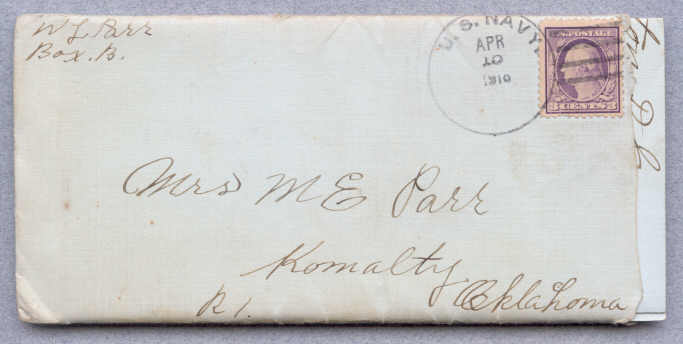 W L Parr
Box. B.
U.S. NAVY
APR
10
U.S. POSTAGE
3 CENTS 3
Mrs M E Parr
Komalty
Oklahoma
R 1.